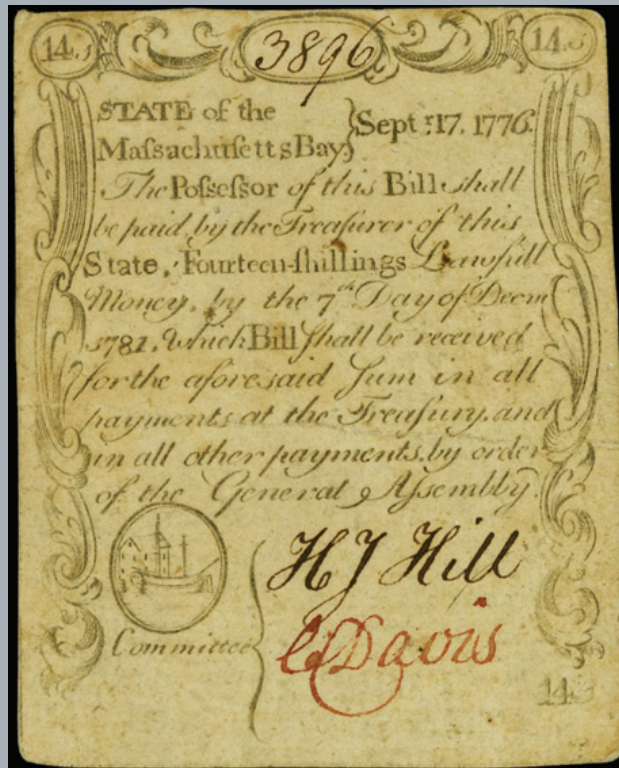 14.s 3896 14.s
STATE of the
Maſsachusetts Bay } Sept.r 17. 1776.
The Poſseſsor of this Bill shall
be paid by the Treaſurer of this
State, Fourteen-ſhillings Lawfull
Money, by the 7th Day of Decm
1781. which Bill ſhall be received
for the aforesaid Sum in all
payments at the Treaſury, and
in all other payments, by order
of the General Aſsembly.
H J Hill
Committee
C Davis
14.s